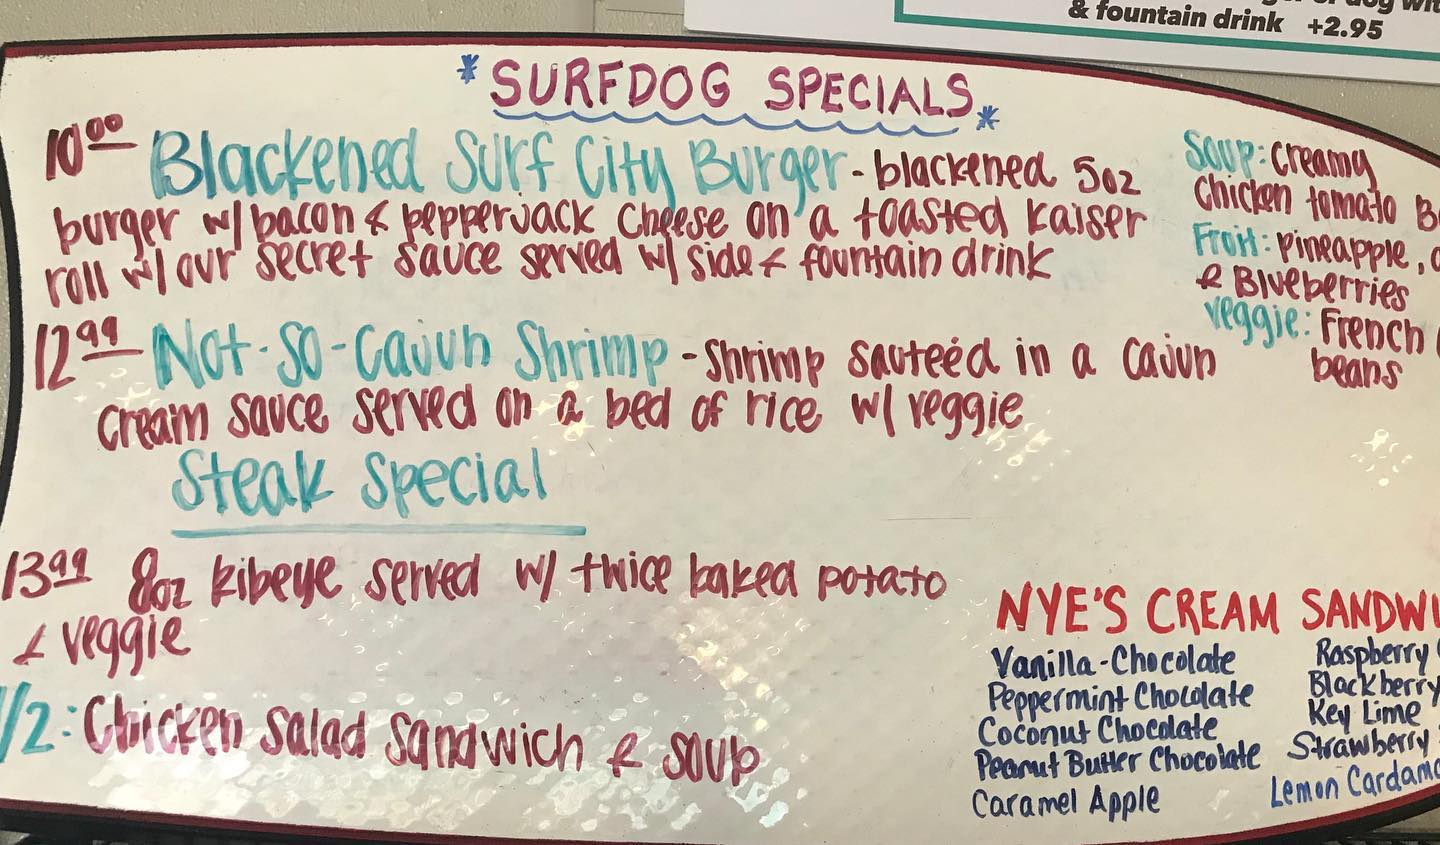 & fountain drink +2.95
*SURFDOG SPECIALS*
10⁰⁰ Blackened Surf City Burger - blackened 5oz
burger w/ bacon & pepperjack cheese on a toasted kaiser
roll w/ our secret sauce served w/ side & fountain drink
12⁹⁹ Not-So-Cajun Shrimp - Shrimp sauteéd in a cajun
cream sauce served on a bed of rice w/ veggie
Steak Special
13⁹⁹ 8oz Ribeye served w/ twice baked potato
& veggie
1/2: Chicken salad sandwich & soup
Soup: Creamy
Chicken tomato
Fruit: pineapple,
& Blueberries
veggie: French
beans
NYE'S CREAM
Vanilla-Chocolate
Peppermint Chocolate
Coconut Chocolate
Peanut Butter Chocolate
Caramel Apple
Raspberry
Blackberry
Key Lime
Strawberry
Lemon